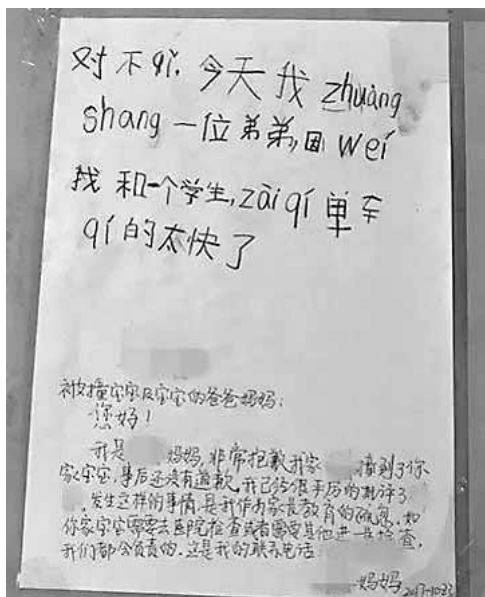 对不qǐ.今天我zhuàng
shang一位弟弟,因wéi
我和一个学生,zài qí单车
qí的太快了
被撞宝宝及宝宝的爸爸妈妈:
您好!
我是 妈妈,非常抱歉我家 撞到了你
家宝宝,事后还没有道歉,我已给很严厉的批评了
,发生这样的事情是我作为家长教育的 ,如
你家宝宝需要去医院检查或者需要其他进一步检查,
我们都会负责的.这是我的联系电话
妈妈
2017-10-23